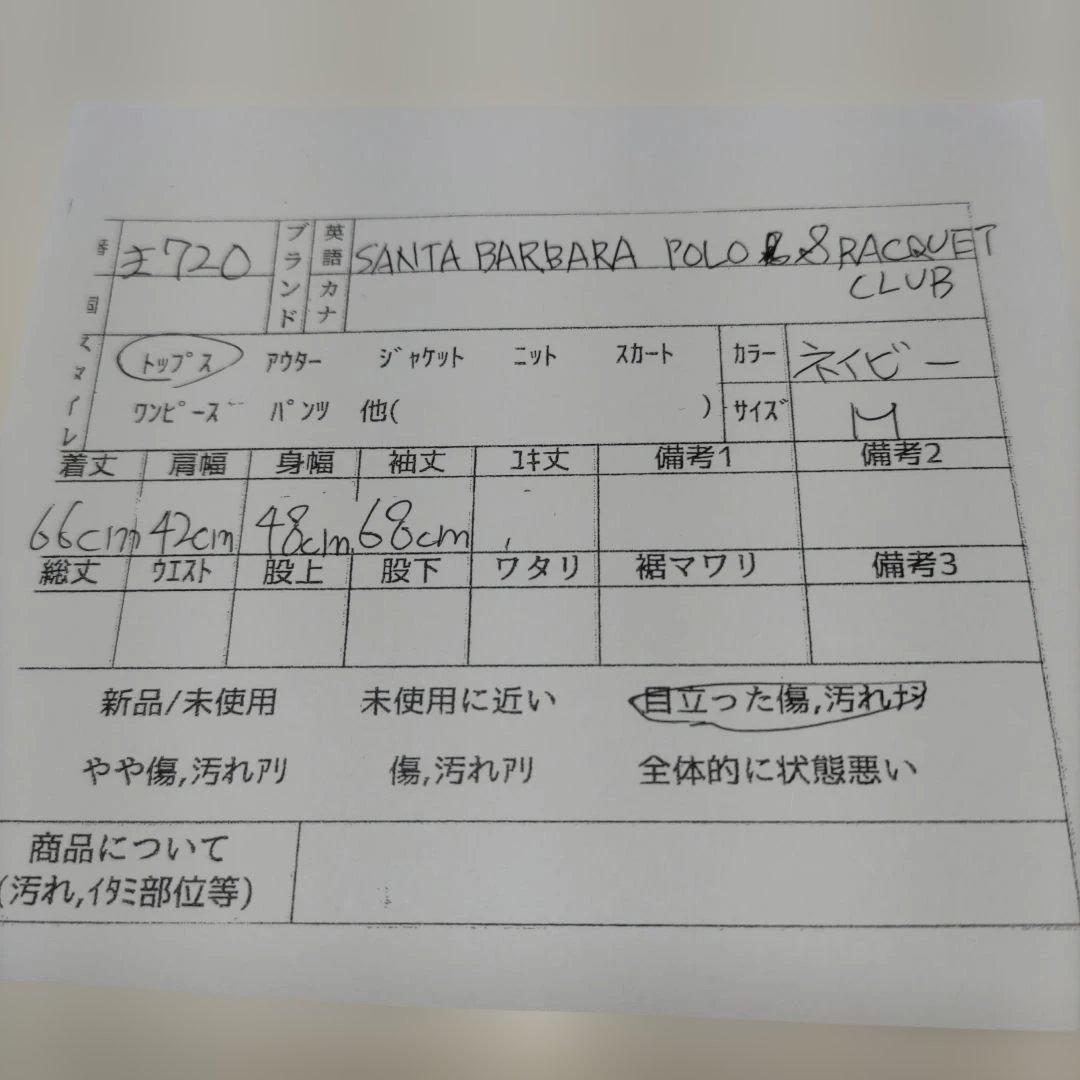 番 主720 ブランド 英語 SANTA BARBARA POLO & RACQUET
カナ CLUB
スタイル トップス アウター ジャケット ニット スカート カラー ネイビー
ワンピース パンツ 他( ) サイズ M
着丈 肩幅 身幅 袖丈 ユキ丈 備考1 備考2
66cm 42cm 48cm 68cm
総丈 ウエスト 股上 股下 ワタリ 裾マワリ 備考3
新品/未使用 未使用に近い 目立った傷,汚れナシ
やや傷,汚れアリ 傷,汚れアリ 全体的に状態悪い
商品について
(汚れ,イタミ部位等)